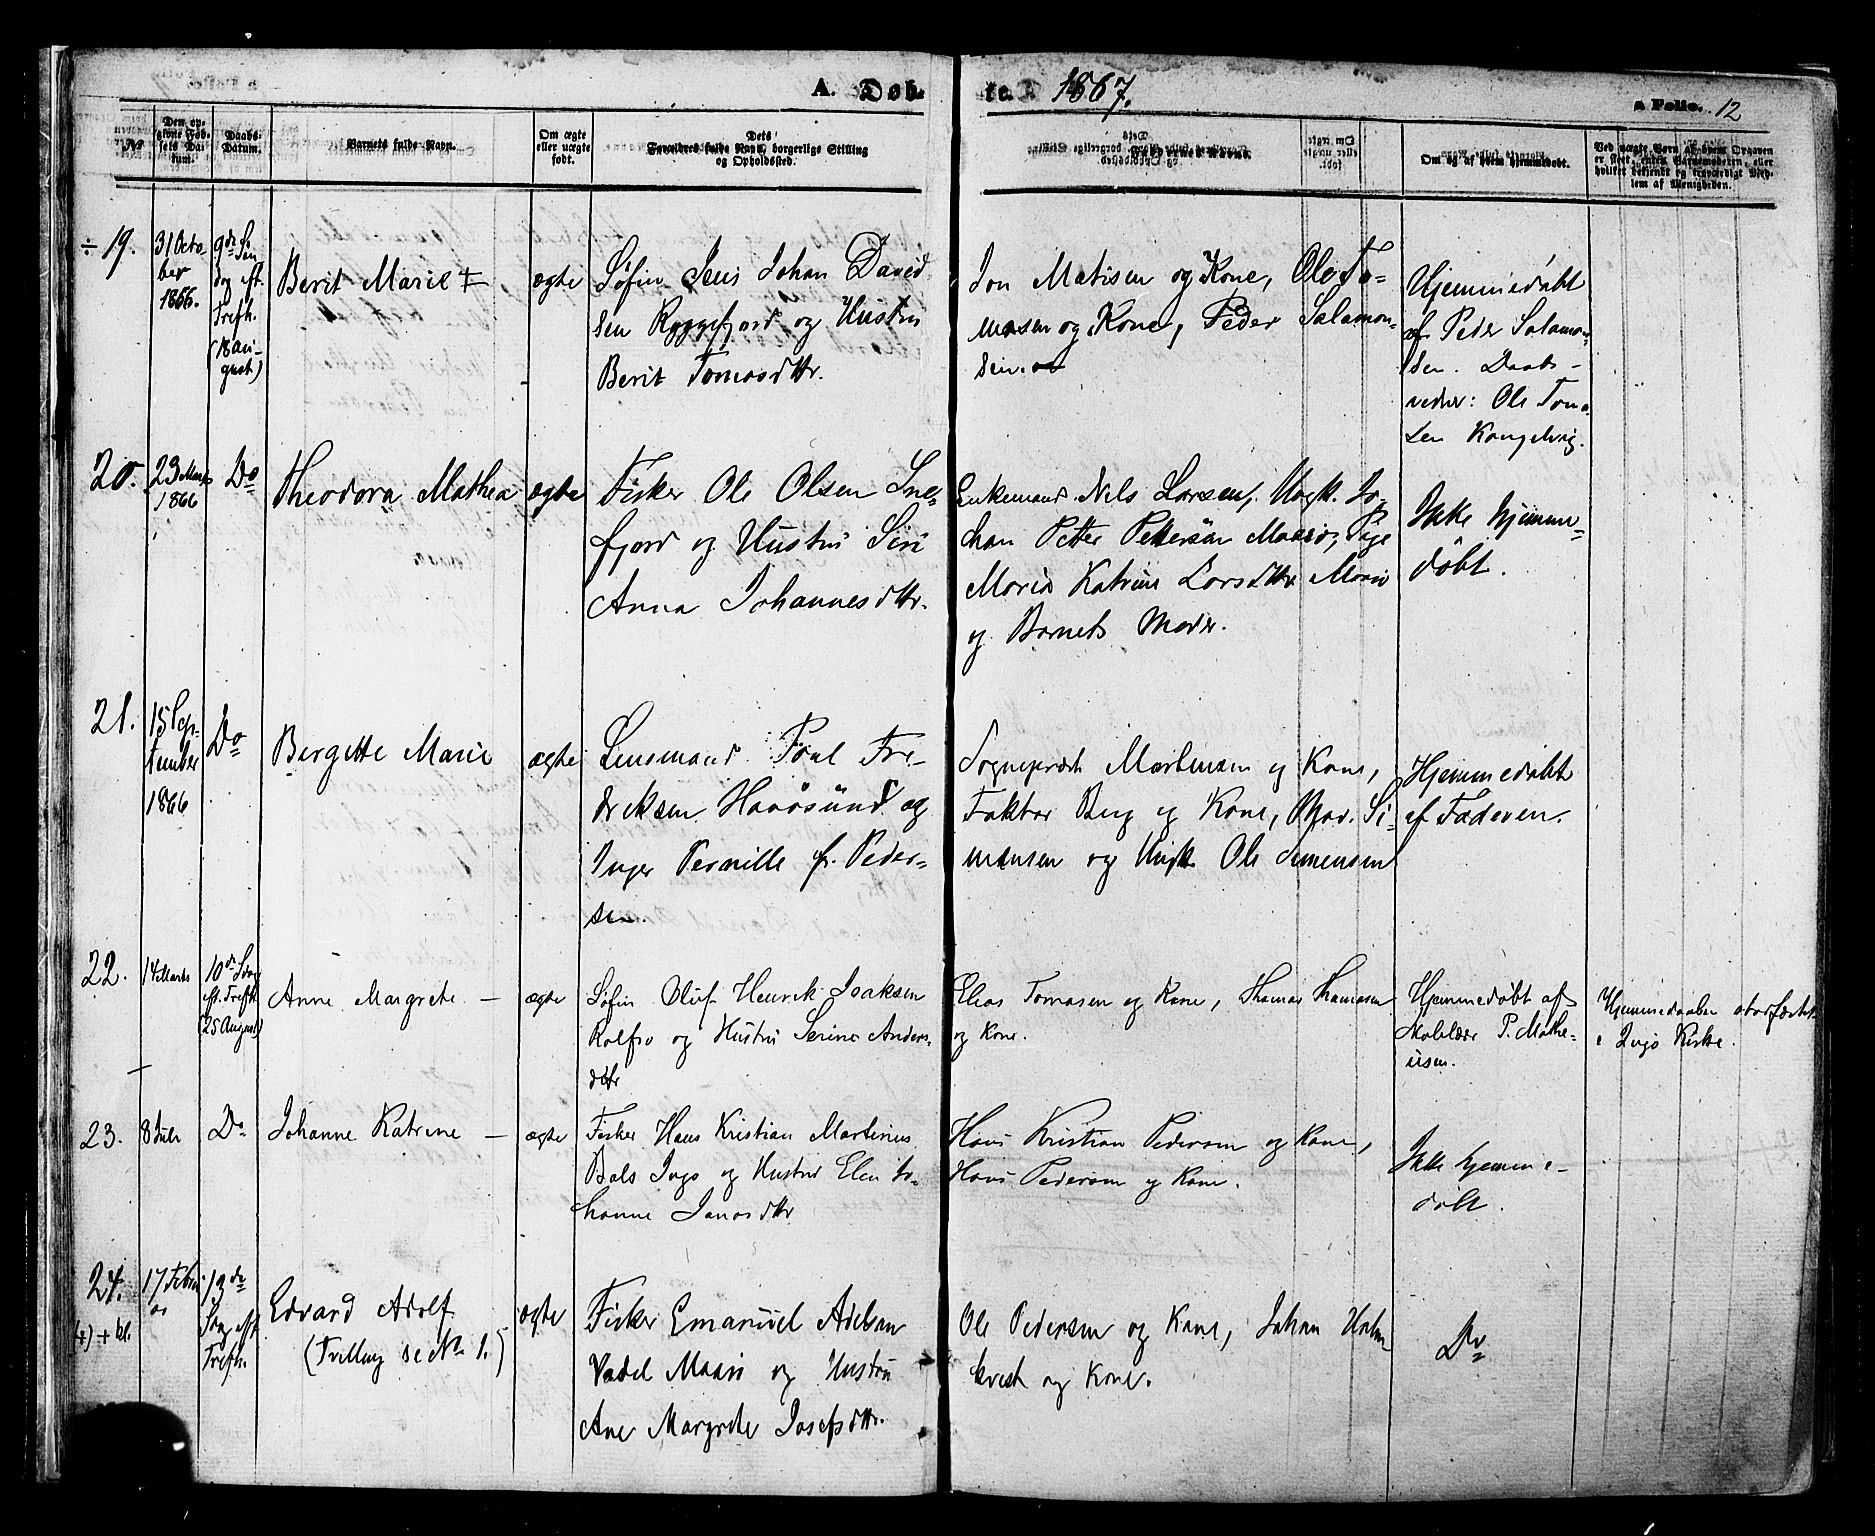 A. Døb-
te. 1867.
a Folio. 12
№
Den op-
givne Fød-
sels Da-
tum.
Daabs-
Datum.
Barnets fulde Navn.
Om ægte
eller uægte
født.
Dets
Forældres fulde Navn, borgerlige Stilling
og Opholdssted.
Faddernes Navne.
Om og af hvem hjemmedøbt.
Ved uægte Børn af hvem Opgaven
er skeet, enten Barnemoderen, eller
hvilket bekjendt og troværdigt Med-
lem af Menigheden.
÷ 19.
31 Octo-
ber
1866.
9de Søn-
dag eft.
Trefh.
(18 Au-
gust)
Berit Marie +
ægte
Søfin Jens Johan David-
sen Ryggefjord og Hustru
Berit Tomasdttr.
Jon Matisen og Kone, Ole To-
masen og Kone, Peder Salamon-
sen.
Hjemmedøbt
af Peder Salamon-
sen. Daabs-
vidner: Ole Toma-
sen
20.
23 Marts
1866
Do
Theodora Mathea
ægte
Fisker Ole Olsen Sne-
fjord og Hustru Siri
Anna Johannesdttr.
Enkemand Nils Larsen, Ungk. Jo-
han Petter Pettersen Maasø, Pige
Maria Katrine Larsdttr Maasø
og Barnets Moder.
Ikke hjemme-
døbt.
21.
15 Sep-
tember
1866
Do
Bergitte Marie
ægte
Lensmand Poul Fre-
driksen Havøsund og
Inger Pernille f. Peder-
sen.
Sogneprest Martinsen og Kone,
Faktor Berg og Kone, Si-
mensen og Ungk Ole Simensen
Hjemmedøbt
af Faderen.
22.
14 Marts
10de Søndag
eft. Trefh.
(25 August)
Anne Margrete –
ægte
Søfin Oluf Henrik Isaksen
Rolfsø og Hustru Serine Anders-
dttr
Elias Tomasen og Kone, Thomas Thomasen
og Kone.
Hjemmedøbt af
P. Mathi-
isen.
Hjemmedaaben stadfæstet
i Ingø Kirke.
23.
8 Juli
Do
Johanne Katrine –
ægte
Fisker Hans Kristian Martinus
Bals Ingø og Hustru Elen Jo-
hanne Jonasdttr
Hans Kristian Pedersen og Kone,
Hans Pedersen og Kone.
Ikke hjemme-
døbt.
24.
17 Febru-
ar
13de
Søndag eft.
Trefh.
Edvard Adolf
(Tvilling se No 1.)
ægte
Fisker Emanuel Adelsen
Vadel Maasø og Hustru
Ane Margrete Josefsdttr.
Ole Pedersen og Kone, Johan Holm-
kvist og Kone.
Do